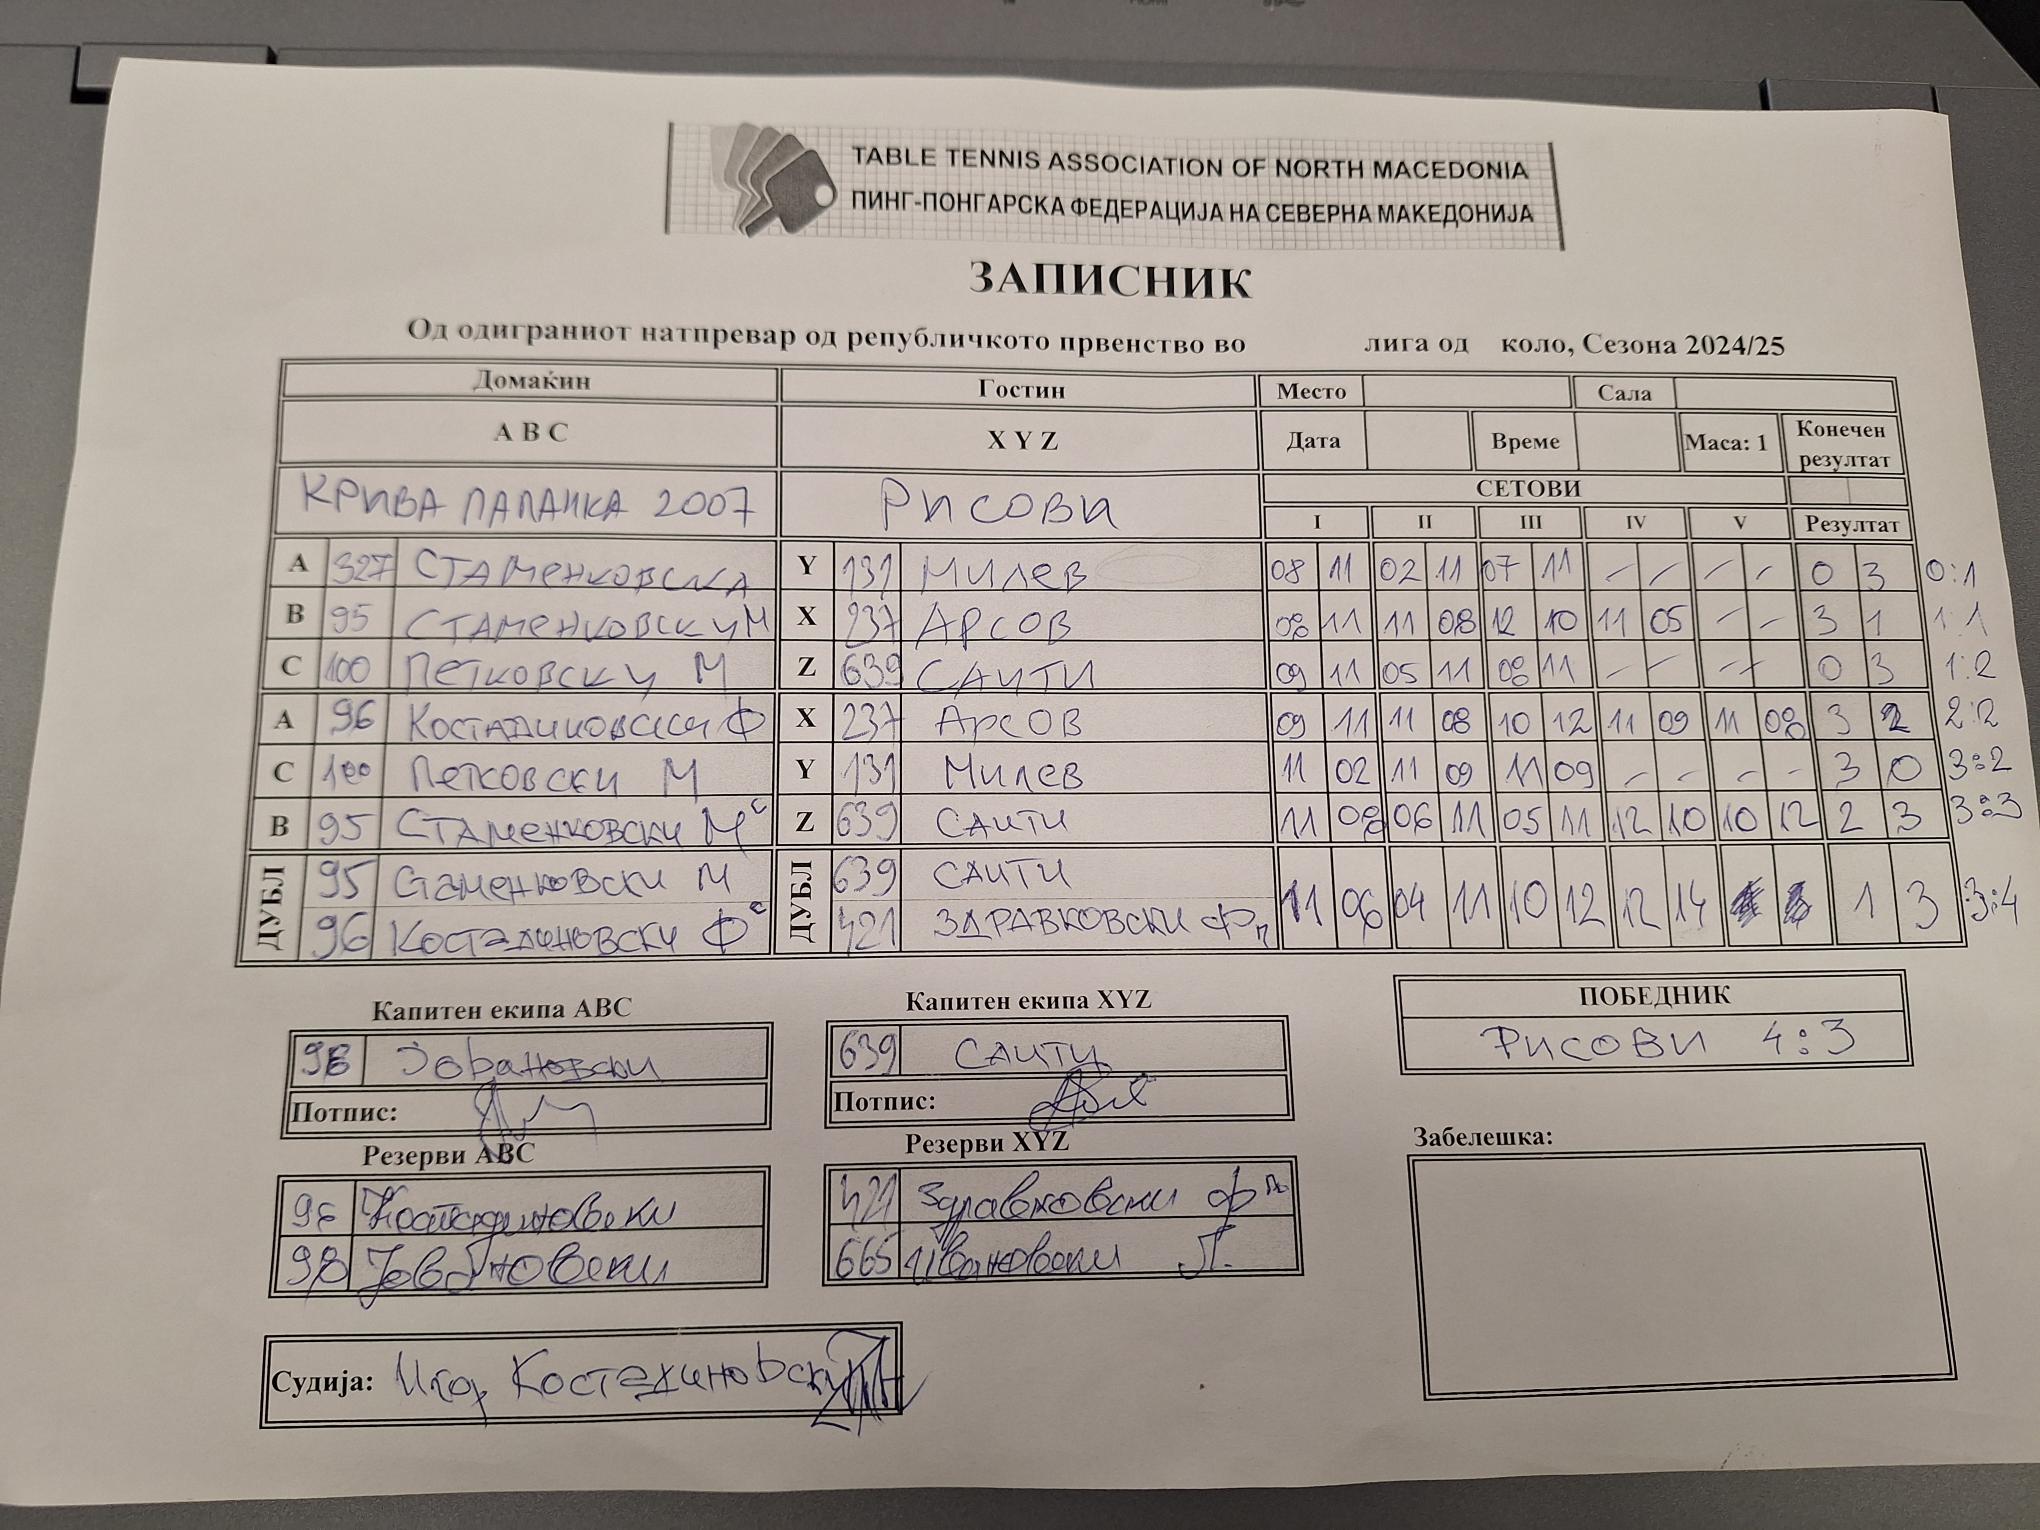 TABLE TENNIS ASSOCIATION OF NORTH MACEDONIA
ПИНГ-ПОНГАРСКА ФЕДЕРАЦИЈА НА СЕВЕРНА МАКЕДОНИЈА
ЗАПИСНИК
Од одиграниот натпревар од републичкото првенство во лига од коло, Сезона 2024/25
Домаќин Гостин Место Сала
A B C X Y Z Дата Време Маса: 1 Конечен резултат
КРИВА ПАЛАНКА 2007 РИСОВИ СЕТОВИ
I II III IV V Резултат
A 327 СТАМЕНКОВСКА Y 131 МИЛЕВ 08 11 02 11 07 11 – – – – 0 3 0:1
B 95 СТАМЕНКОВСКИ М X 237 АРСОВ 08 11 11 08 12 10 11 05 – – 3 1 1:1
C 100 ПЕТКОВСКИ М Z 639 САИТИ 09 11 05 11 08 11 – – – – 0 3 1:2
A 96 КОСТАДИНОВСКИ Ф X 237 АРСОВ 09 11 11 08 10 12 11 09 11 08 3 2 2:2
C 100 ПЕТКОВСКИ М Y 131 МИЛЕВ 11 02 11 09 11 09 – – – – 3 0 3:2
B 95 СТАМЕНКОВСКИ Мс Z 639 САИТИ 11 08 06 11 05 11 12 10 10 12 2 3 3:3
ДУБЛ 95 СТАМЕНКОВСКИ М ДУБЛ 639 САИТИ 11 06 04 11 10 12 12 14 1 3 3:4
96 КОСТАДИНОВСКИ Фс 421 ЗДРАВКОВСКИ Фп
Капитен екипа ABC Капитен екипа XYZ ПОБЕДНИК
98 Јовановски 639 САИТИ РИСОВИ 4:3
Потпис: Потпис:
Резерви ABC Резерви XYZ Забелешка:
96 Костадиновски 421 Здравковски ф
98 Јовановски 665 Ивановски Л.
Судија: Игор Костадиновски